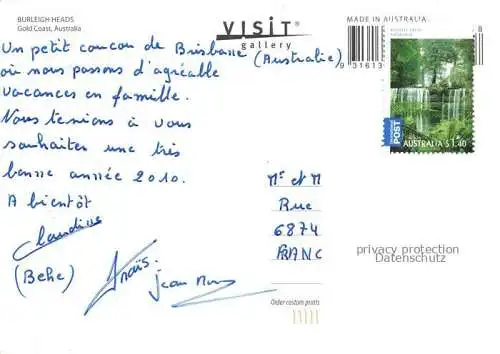 BURLEIGH HEADS
Gold Coast, Australia
VISIT®
gallery
MADE IN AUSTRALIA
9 01613
8
Un petit coucou de Brisbane (Australie)
où nous passons d'agréable
vacances en famille.
Nous tenions à vous
souhaiter une très
bonne année 2010.
A bientôt
Claudius
(Bebe)
Anaïs.
Jean
INTERNATIONAL
POST
AUSTRALIA $1.40
Mr et M
Rue
6874
FRANC
privacy protection
Datenschutz
Order custom prints